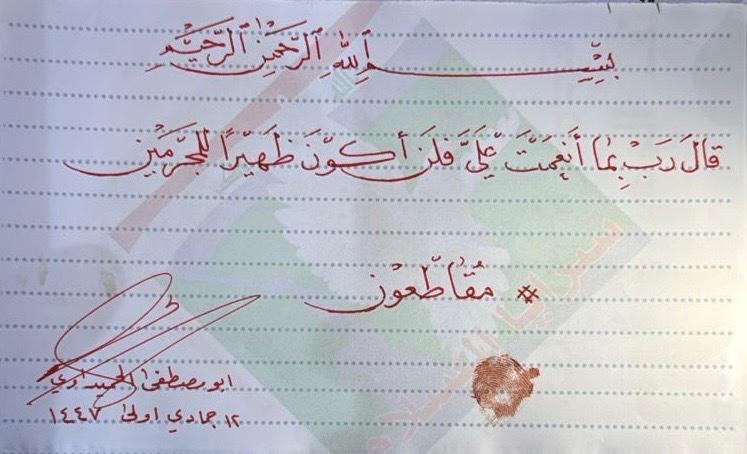 بِسْمِ ٱللهِ ٱلرَّحْمَٰنِ ٱلرَّحِيْمِ
قالَ رَبِّ بِمٰا أَنْعَمْتَ عَلَيَّ فَلَنْ أَكُوْنَ ظَهِيْرًا لِلْمُجْرِمِيْنَ
# مُقٰاطِعُونْ
ابو مصطفىٰ الحميداوي
١٢ جمادي اولىٰ ١٤٤٧
سرايا السلام